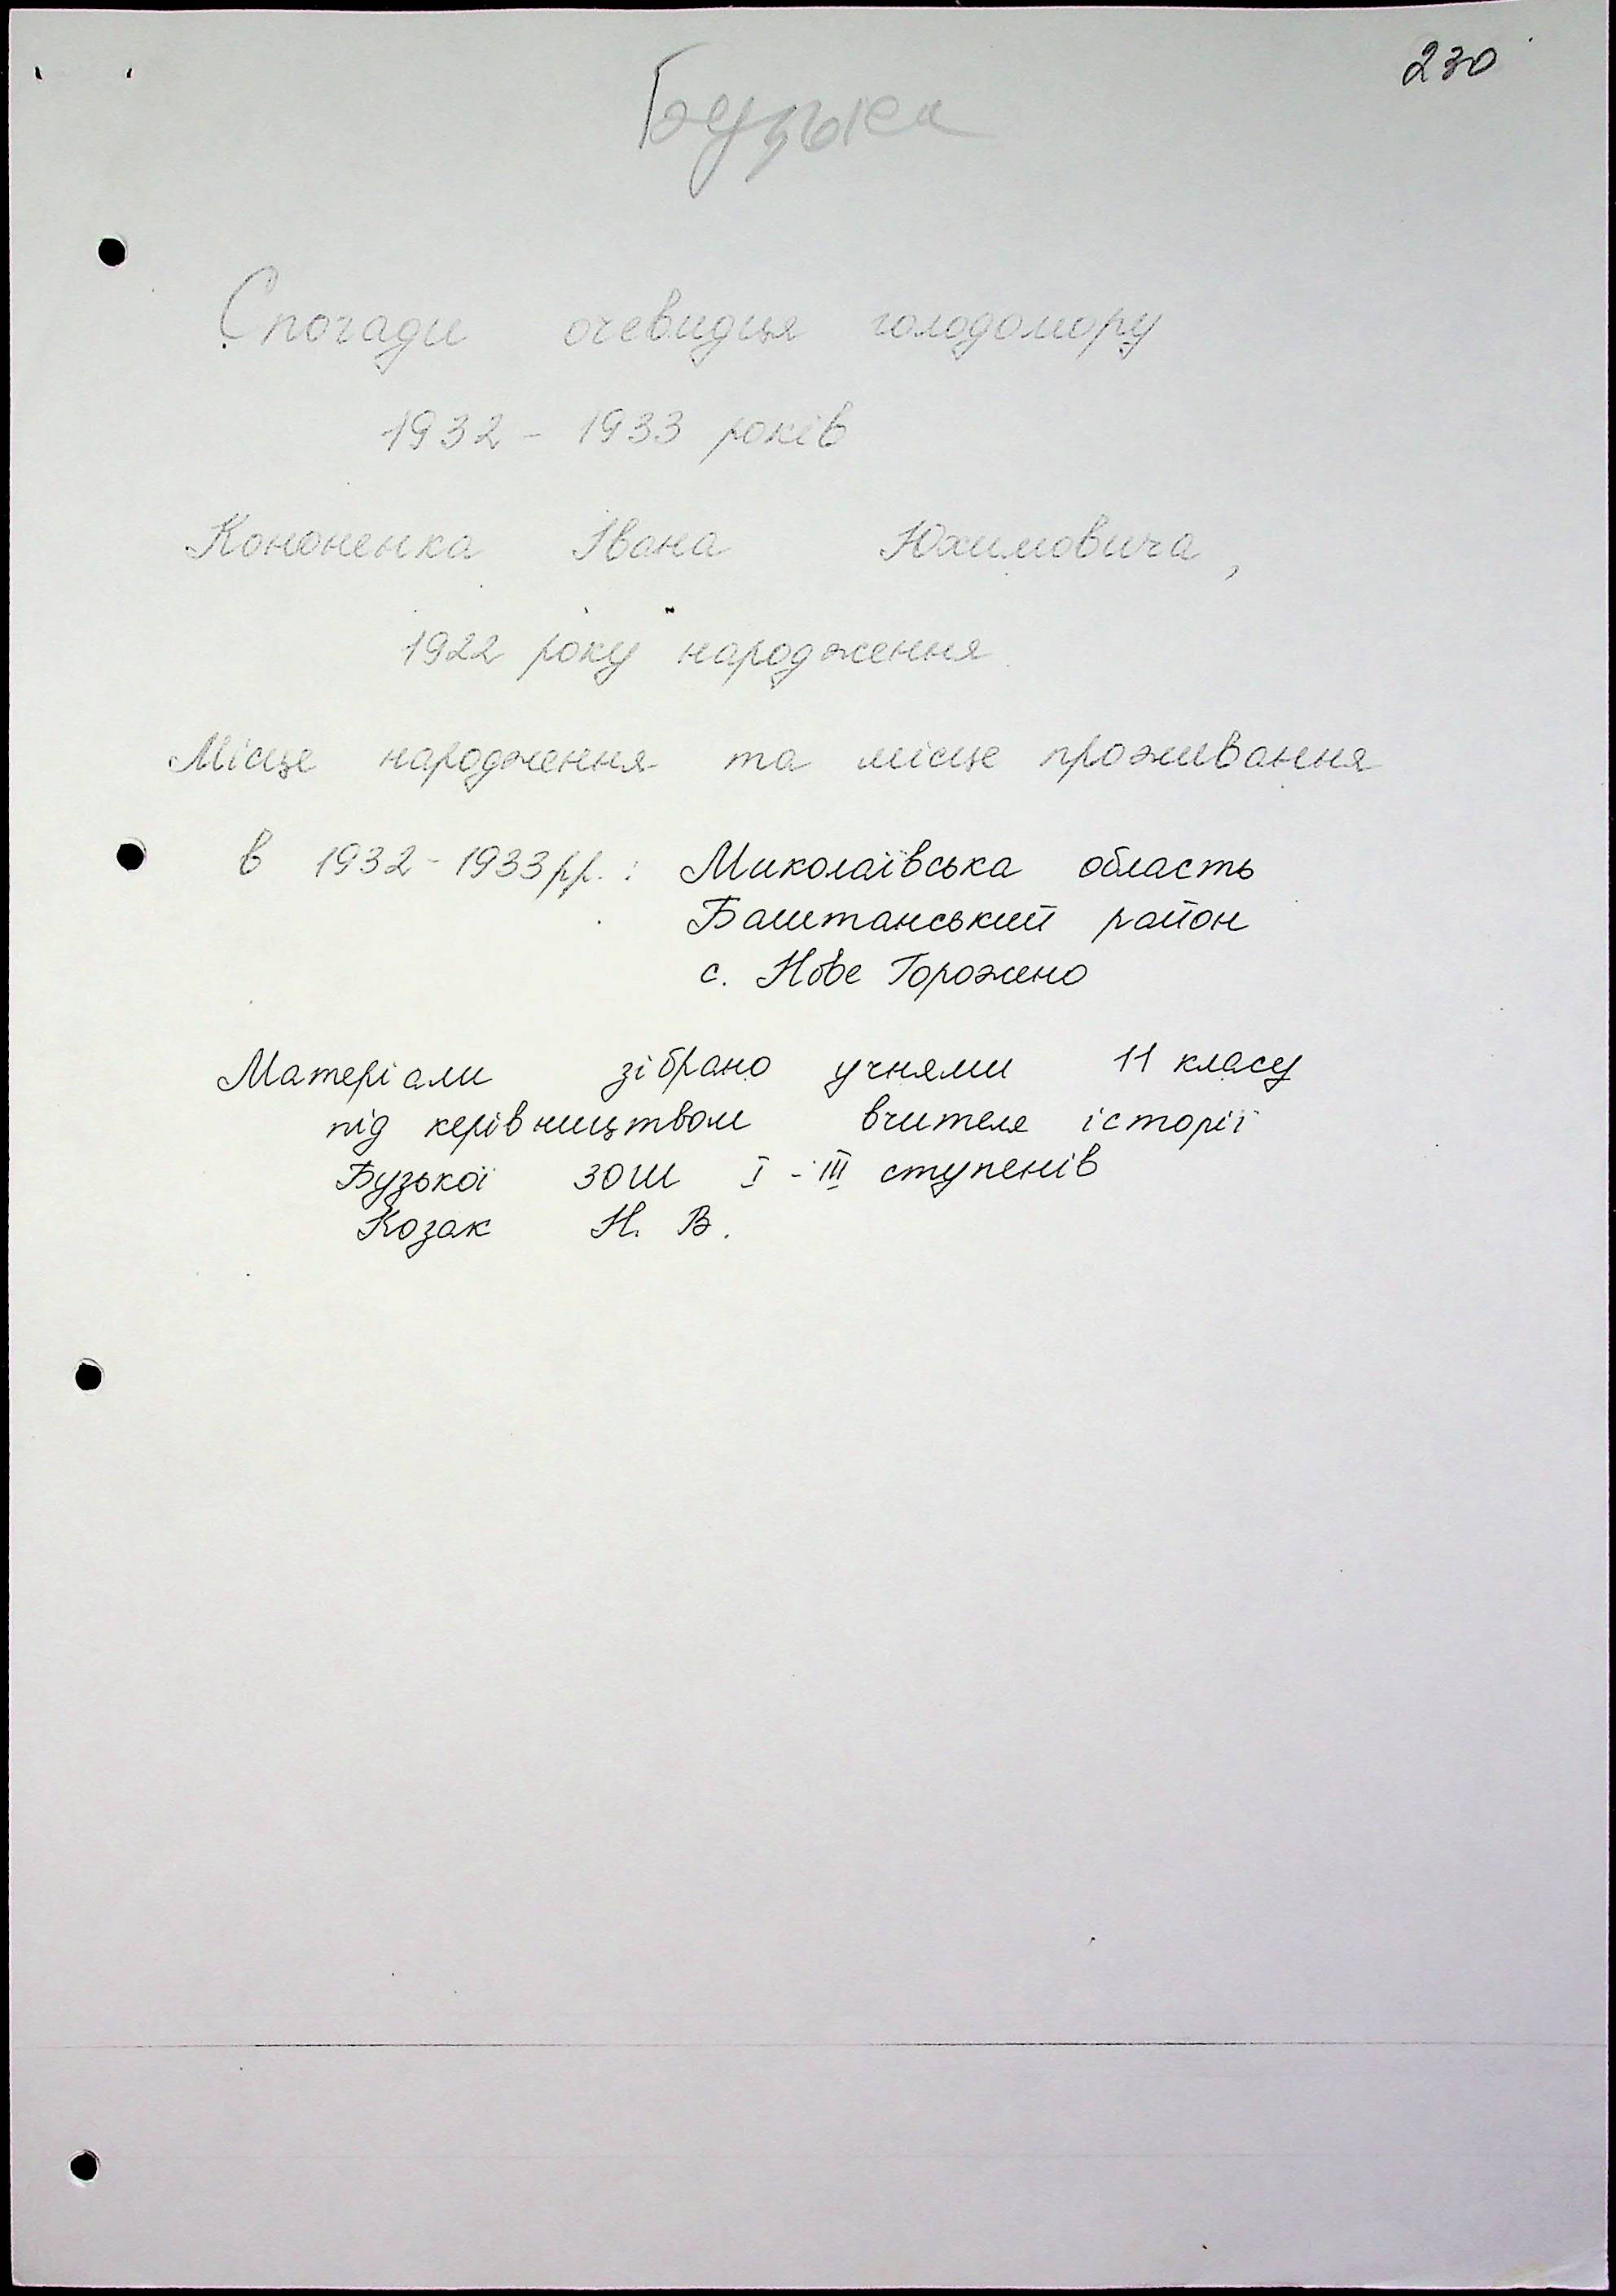 230
Бузька
Спогади очевидця голодомору
1932 - 1933 років
Кононенка Івана Юхимовича,
1922 року народження.
Місце народження та місце проживання
в 1932 - 1933 рр. : Миколаївська область
Баштанський район
с. Нове Горожено
Матеріали зібрано учнями 11 класу
під керівництвом вчителя історії
Бузької ЗОШ I - III ступенів
Козак Н. В.